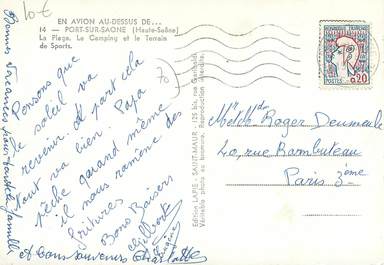 10 €
EN AVION AU-DESSUS DE...
14 — PORT-SUR-SAONE (Haute-Saône)
La Plage. Le Camping et le Terrain
de Sports.
Pensons que
le soleil va
revenir. A part cela
tout va bien. Papa
pêche quand même
il nous ramène des
fritures
Bons Baisers
et bons souvenirs Charlotte
Bonnes vacances pour toute la famille
Edition LAPIE - SAINT-MAUR, 125 bis, rue Garibaldi
Véritable photo au bromure. Reproduction interdite.
REPUBLIQUE FRANÇAISE
POSTES 0,20
Roger
40, rue Rambuteau
Paris 3ème